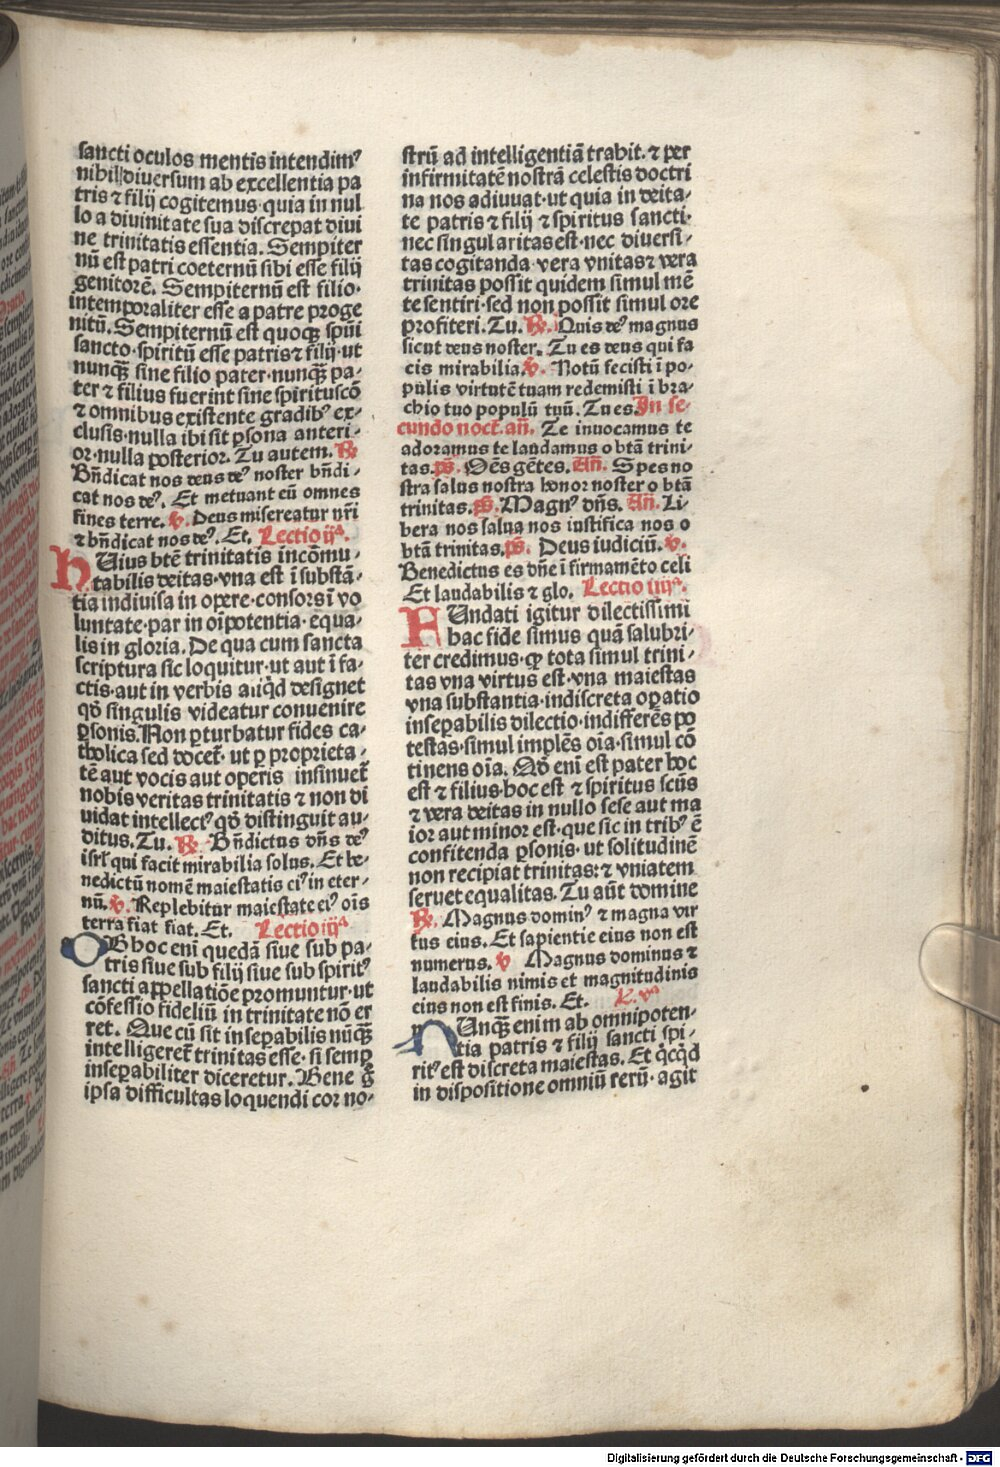 sancti oculos mentis intendimꝰ
nihil diuersum ab excellentia pa
tris ⁊ filij cogitemus·quia in nul
lo a diuinitate sua discrepat diui
ne trinitatis essentia. Sempiter
nū est patri coeternū sibi esse filij
genitorē. Sempiternū est filio·
intemporaliter esse a patre proge
nitū. Sempiternū est quoqꝫ spūi
sancto·spiritū esse patris ⁊ filij·ut
nunqꝫ̄ sine filio pater·nunqꝫ̄ pa-
ter ⁊ filius fuerint sine spirituscō
⁊ omnibus existente gradibꝰ ex-
clusis·nulla ibi sit ꝑsona anteri-
or·nulla posterior. Tu autem. ℟
Bn̄dicat nos deus deꝰ noster bn̄di-
cat nos deꝰ. Et metuant eū omnes
fines terre. ℣. Deus misereatur nr̄i
⁊ bn̄dicat nos deꝰ. Et. Lectio ijª.
HUius btē trinitatis incōmu-
tabilis deitas·vna est ī substā-
tia indiuisa in opere·consors ī vo
luntate·par in oīpotentia·equa-
lis in gloria. De qua cum sancta
scriptura sic loquitur·ut aut ī fa-
ctis·aut in verbis aliqd designet
qḋ singulis videatur conuenire
ꝑsonis. Non ꝑturbatur fides ca-
tholica sed docet̄·ut ꝑ proprieta-
tē aut vocis aut operis insinuet̄
nobis veritas trinitatis ⁊ non di
uidat intellectꝰ qḋ distinguit au-
ditus. Tu. ℟ Bn̄dictus dn̄s deꝰ
isrł qui facit mirabilia solus. Et be-
nedictū nomē maiestatis eiꝰ in eter-
nū. ℣. Replebitur maiestate eiꝰ oīs
terra fiat fiat. Et. Lectio iijª
OB hoc enī quedā siue sub pa-
tris siue sub filij siue sub spiritꝰ
sancti appellatiōe promuntur·ut
cōfessio fideliū in trinitate nō er
ret. Que cū sit inseparabilis nūqꝫ̄
intelligeret̄ trinitas esse·si semꝑ
inseparabiliter diceretur. Bene g̊
ipsa difficultas loquendi cor no-
strū ad intelligentiā trahit·⁊ per
infirmitatē nostrā celestis doctri
na nos adiuuat·ut quia in deita-
te patris ⁊ filij ⁊ spiritus sancti·
nec singularitas est·nec diuersi-
tas cogitanda·vera vnitas ⁊ vera
trinitas possit quidem simul mē
te sentiri·sed non possit simul ore
profiteri. Tu. ℟. Quis deꝰ magnus
sicut deus noster. Tu es deus qui fa
cis mirabilia. ℣. Notū fecisti ī po-
pulis virtutē tuam redemisti ī bra-
chio tuo populū tuū. Tu es. In se-
cundo noct̄. an̄. Te inuocamus te
adoramus te laudamus o btā trini-
tas. ps̄. Oēs gētes. An̄. Spes no
stra salus nostra honor noster o btā
trinitas. ps̄. Magnꝰ dn̄s. An̄. Li-
bera nos salua nos iustifica nos o
btā trinitas. ps̄. Deus iudiciū. ℣.
Benedictus es dn̄e ī firmamēto celi
Et laudabilis ⁊ glo. Lectio iiijª.
FUndati igitur dilectissimi
hac fide simus quā salubri-
ter credimus·ꝙ tota simul trini-
tas vna virtus est·vna maiestas
vna substantia·indiscreta oꝑatio
inseparabilis dilectio·indifferēs po
testas·simul implēs oīa·simul cō
tinens oīa. Qḋ enī est pater hoc
est ⁊ filius·hoc est ⁊ spiritus scūs
⁊ vera deitas in nullo sese aut ma
ior aut minor est·que sic in tribꝰ ē
confitenda ꝑsonis·ut solitudinē
non recipiat trinitas:⁊ vniatem
seruet equalitas. Tu aūt domine
℟. Magnus dominꝰ ⁊ magna vir
tus eius. Et sapientie eius non est
numerus. ℣ Magnus dominus ⁊
laudabilis nimis et magnitudinis
eius non est finis. Et. L. vª
NUnqꝫ̄ enim ab omnipoten-
tia patris ⁊ filij sancti spi-
ritꝰ est discreta maiestas. Et qcqd
in dispositione omniū rerū·agit
Digitalisierung gefördert durch die Deutsche Forschungsgemeinschaft - DFG